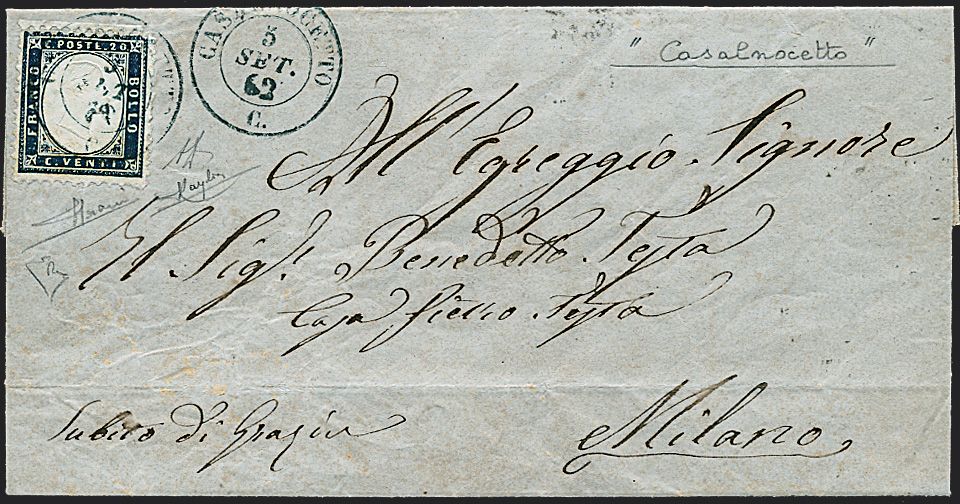 C. POSTE. 20
FRANCO
BOLLO
C. VENTI
CASALNOCETTO
5
SET.
62
C.
" Casalnocetto "
All' Egreggio Signore
Il Sigr. Benedetto Testa
Casa Testa
Subito di Grazia
Milano